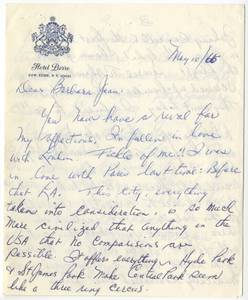 Hotel Pierre
NEW YORK, N.Y. 10021
May 10/66
Dear Barbara Jean:
You now have a rival for
my affections. I'm fallen in love
with London. Fickle of me!! I was
in love with Paris last time: Before
that L.A. This city, everything
taken into consideration, is so much
more civilized that anything in the
USA that no comparisons are
possible. It offers everything & Hyde Park
& St James Park make Central Park seem
like a three ring circus.